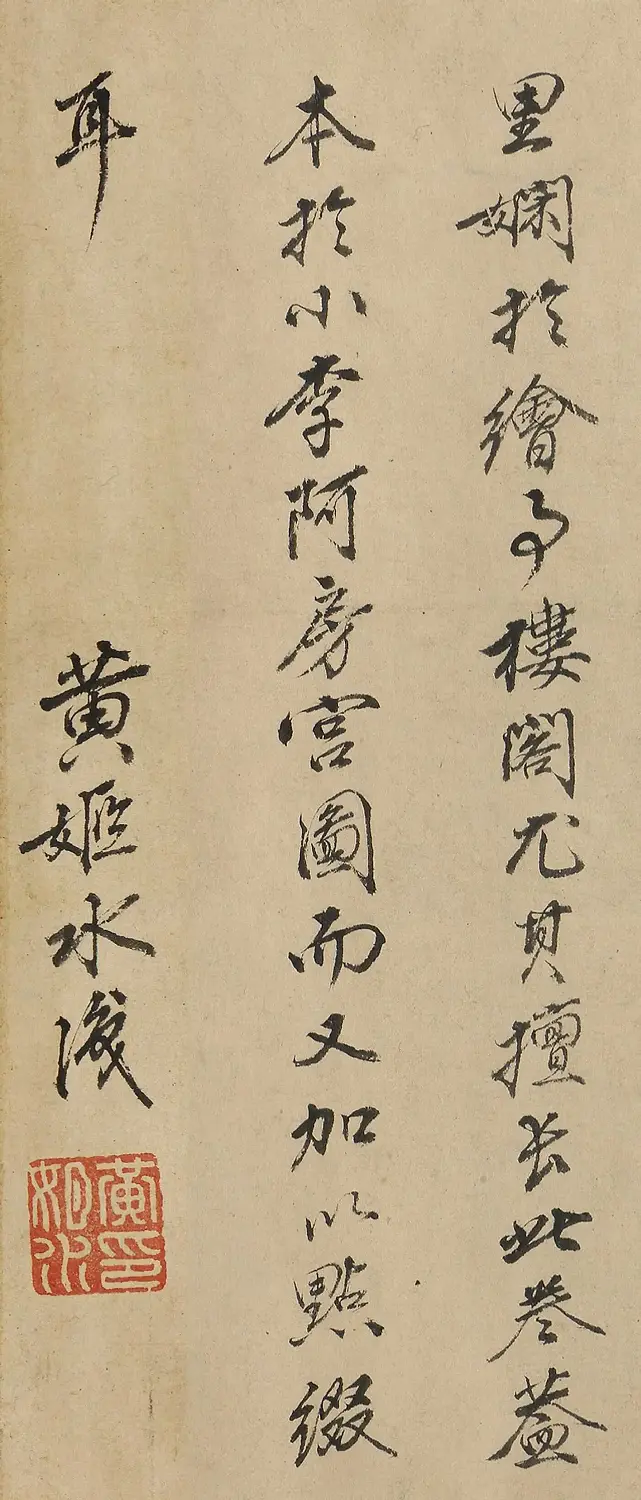 里嫻於繪事樓閣尤其擅長此卷蓋
本於小李阿房宮圖而又加以點綴
耳
黃姬水識
黃印姬水